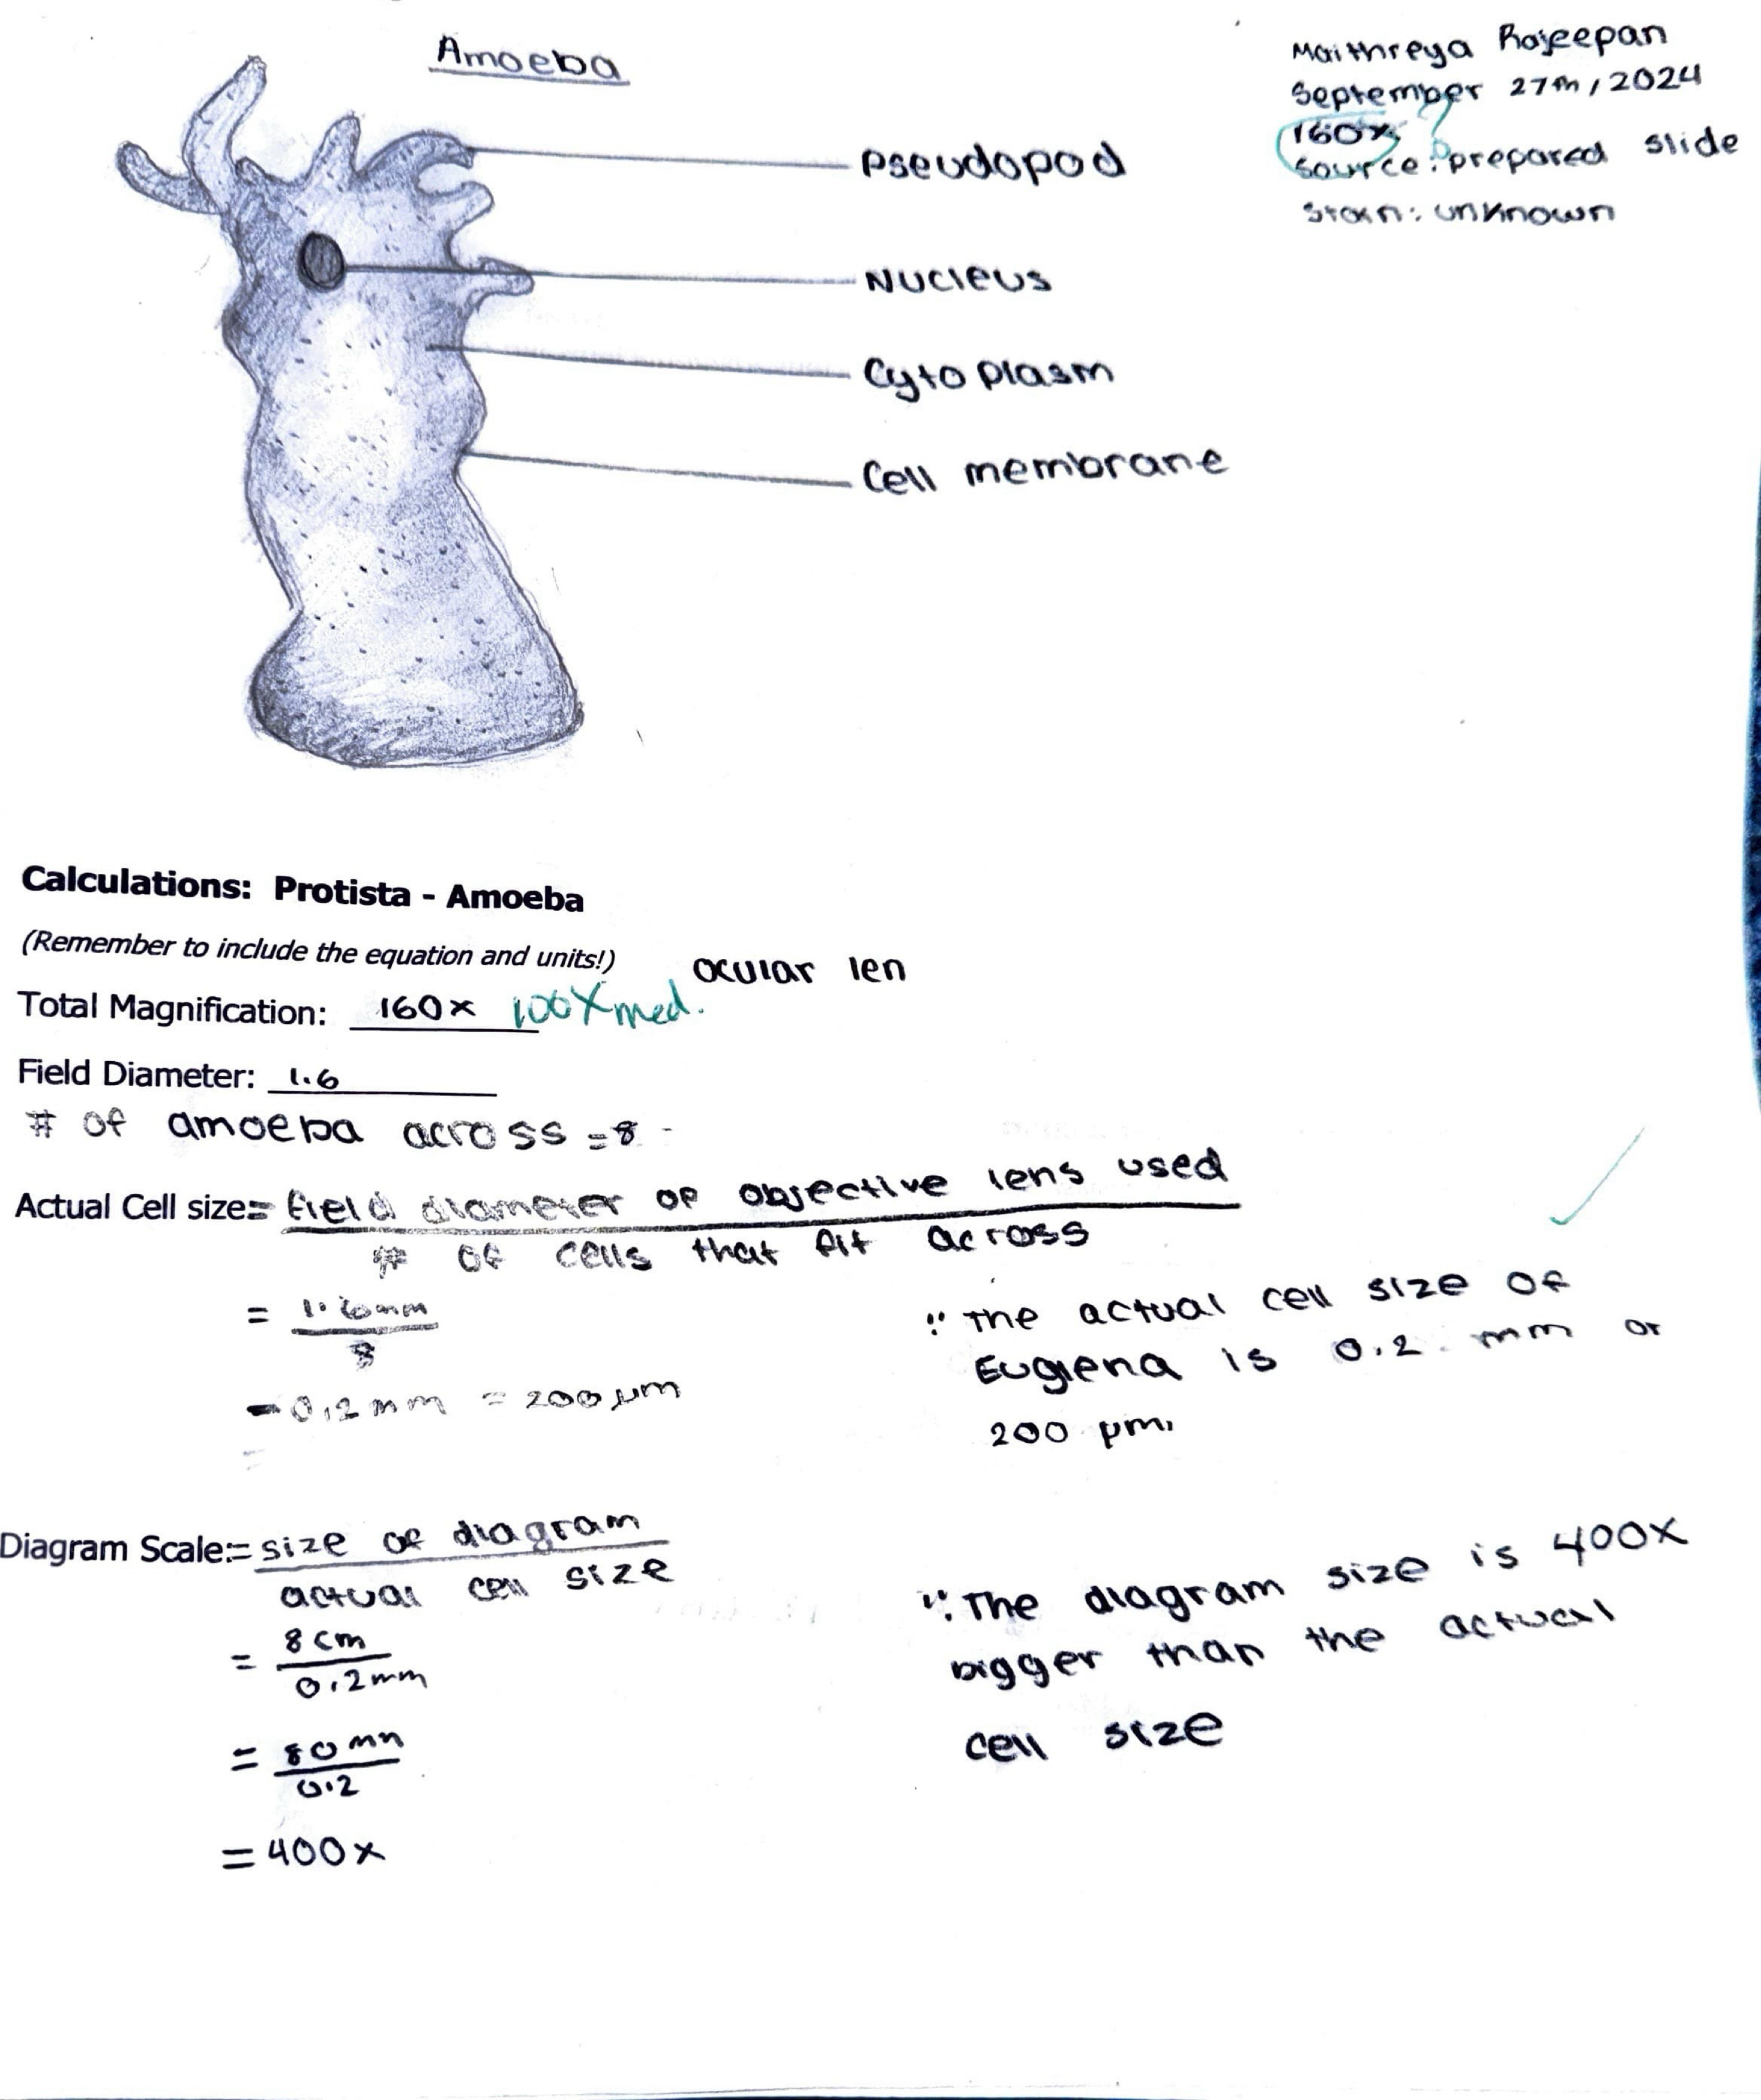 Amoeba
Maithreya Rajeepan
September 27th, 2024
160x ?
Source: prepared slide
Stain: unknown
Pseudopod
Nucleus
Cytoplasm
Cell membrane
Calculations: Protista - Amoeba
(Remember to include the equation and units!)
ocular len
Total Magnification: 160x 100X med.
Field Diameter: 1.6
# of amoeba across = 8
Actual Cell size= field diameter of objective lens used
# of cells that fit across
= 1.6mm
8
= 0.2mm = 200 µm
=
∵ The actual cell size of
Euglena is 0.2 mm or
200 µm.
Diagram Scale:= size of diagram
actual cell size
= 8cm
0.2mm
= 80mm
0.2
= 400x
∵ The diagram size is 400x
bigger than the actual
cell size